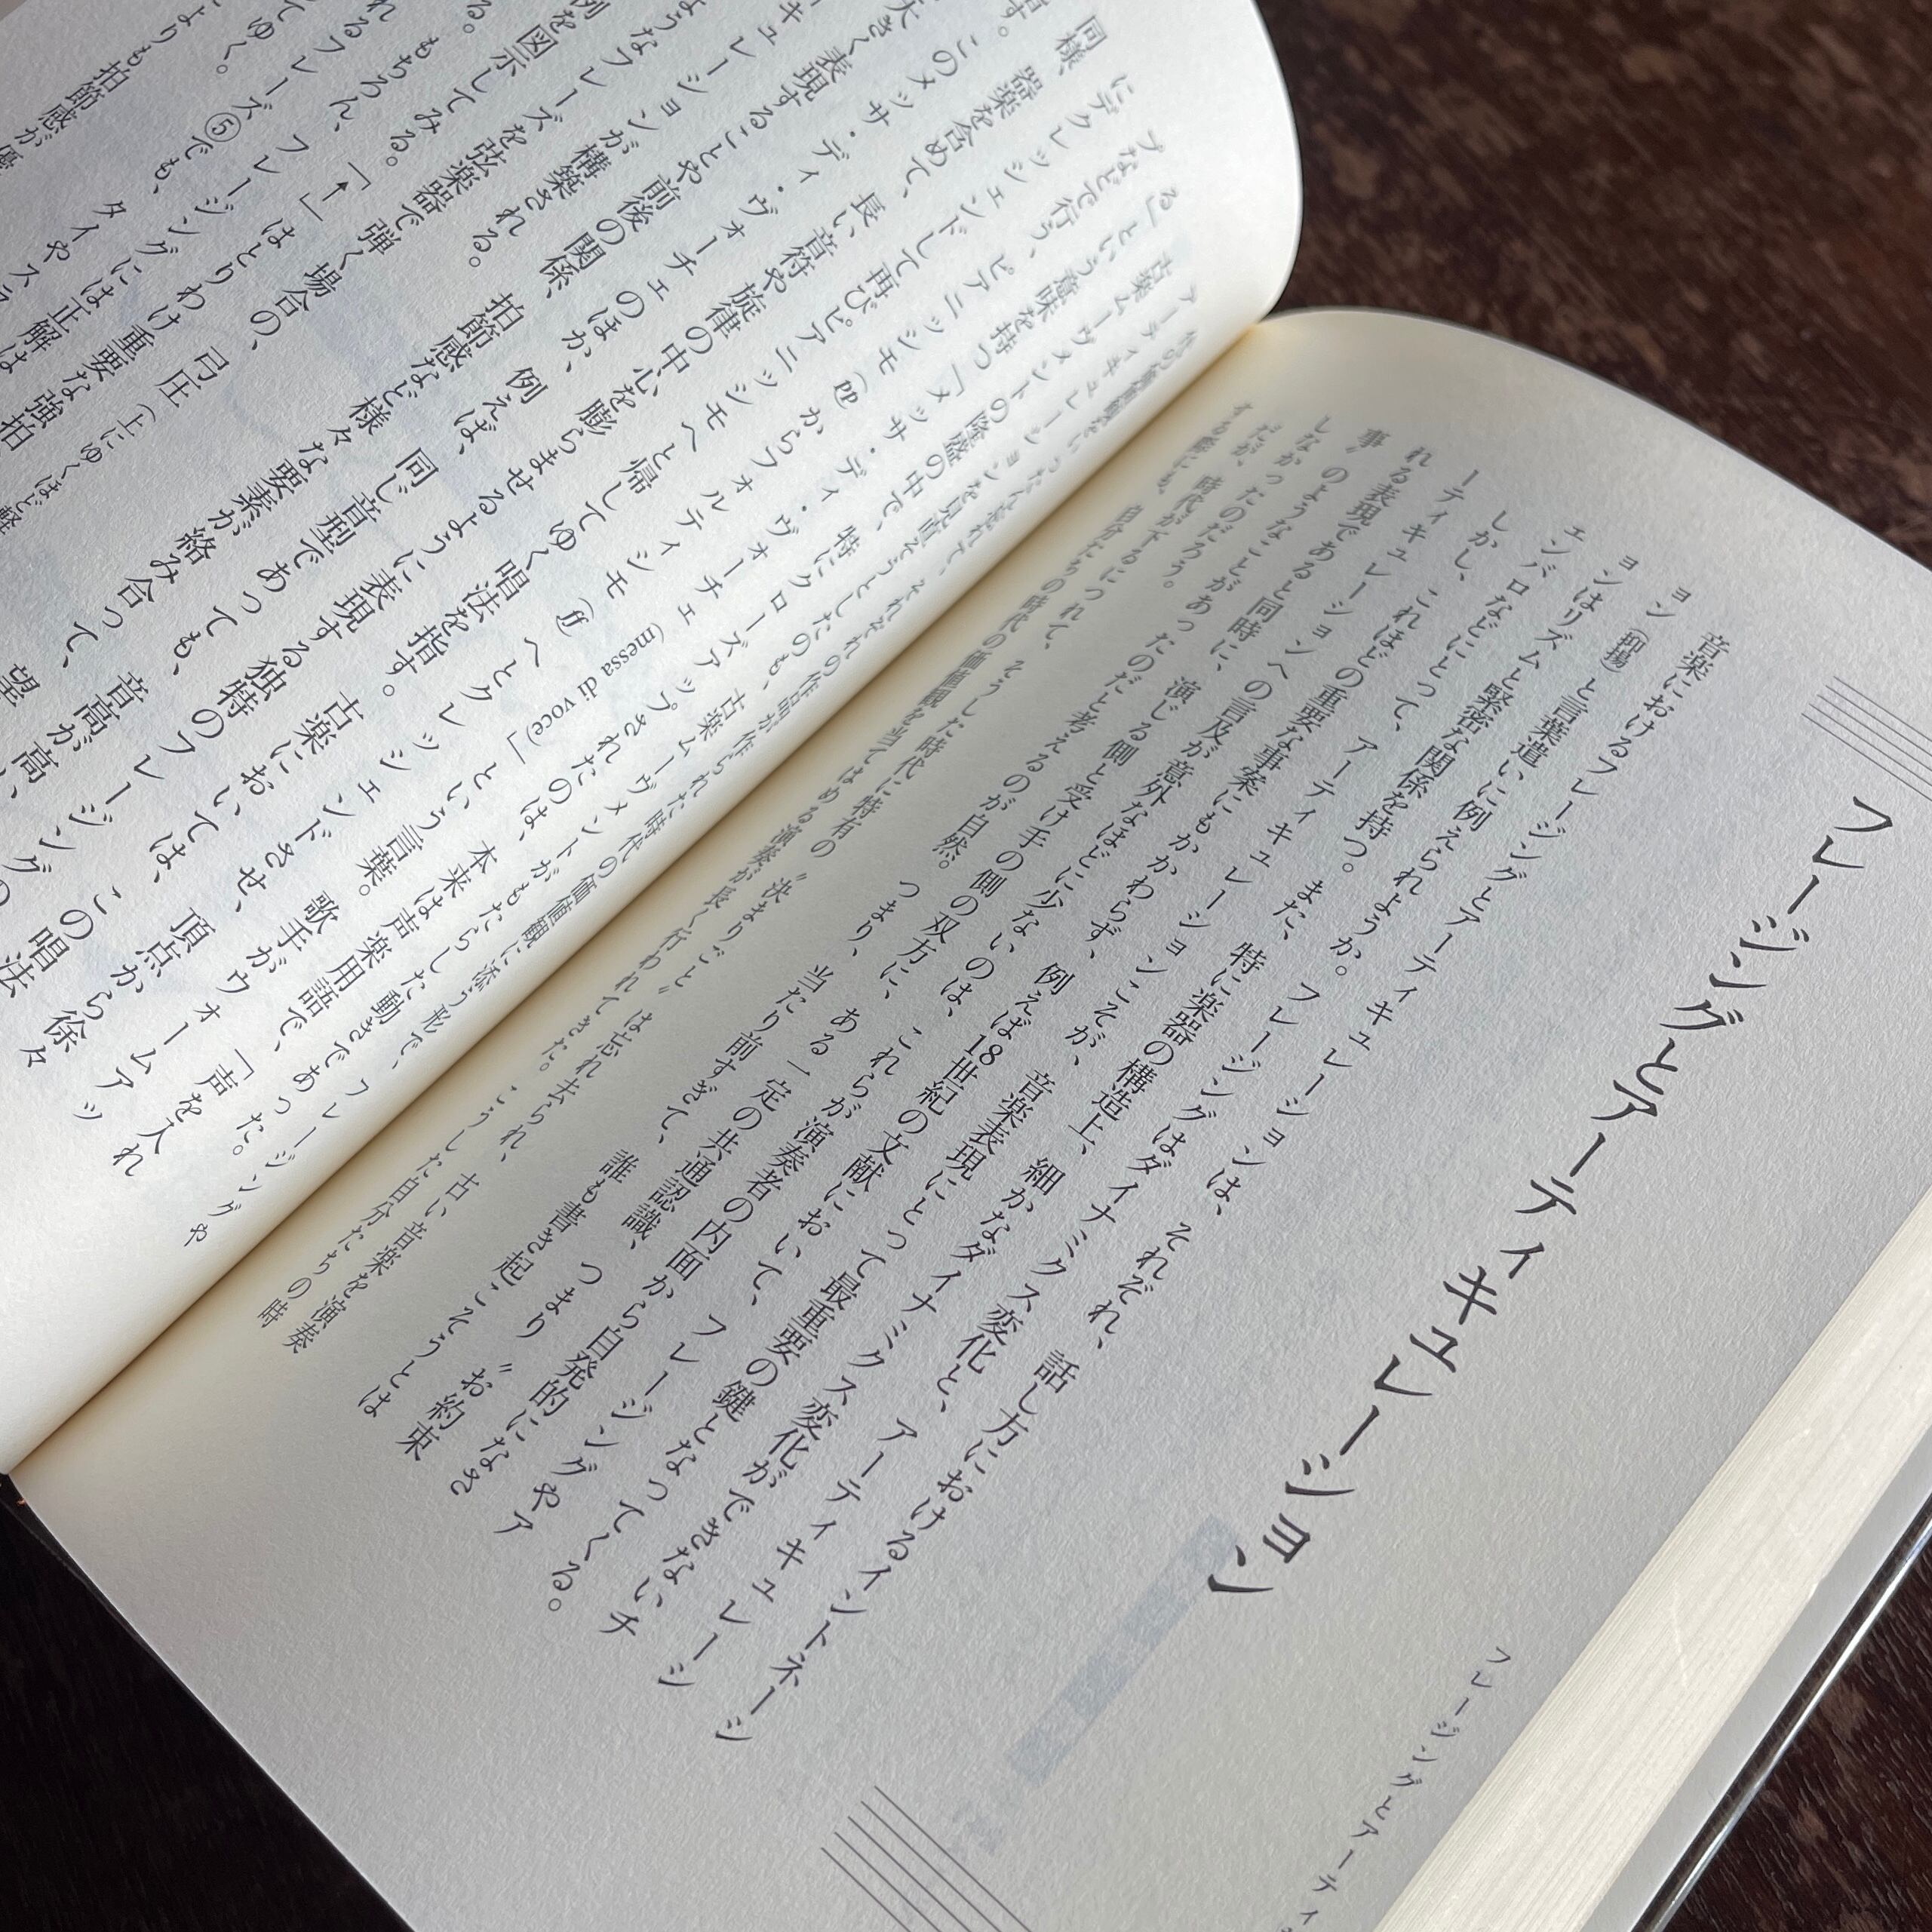 フレージングとアーティ
フレージングとアーティキュレーション
音楽におけるフレージングとアーティキュレーションは、それぞれ、話し方におけるイントネーシ
ョン(抑揚)と言葉遣いに例えられようか。フレージングはダイナミクス変化と、アーティキュレーシ
ョンはリズムと緊密な関係を持つ。また、特に楽器の構造上、細かなダイナミクス変化ができないチ
ェンバロなどにとって、アーティキュレーションこそが、音楽表現にとって最重要の鍵となってくる。
しかし、これほどの重要な事案にもかかわらず、例えば18世紀の文献において、フレージングやア
ーティキュレーションへの言及が意外なほどに少ないのは、これらが演奏者の内面から自発的になさ
れる表現であると同時に、演じる側と受け手の側の双方に、ある一定の共通認識、つまり〝お約束
事〟のようなことがあったのだと考えるのが自然。つまり、当たり前すぎて、誰も書き起こそうとは
しなかったのだろう。
だが、時代が下るにつれて、そうした時代に特有の〝決まりごと〟は忘れ去られ、古い音楽を演奏
する際にも、自分たちの時代の価値観を当てはめる演奏が長く行われてきた。こうした自分たちの時
代の価値観をいったん忘れて、それぞれの作品が作られた時代の価値観に添う形で、フレージングや
アーティキュレーションを見直そうとしたのも、古楽ムーヴメントがもたらした動きであった。
古楽ムーヴメントの隆盛の中で、特にクローズアップされたのは、本来は声楽用語で、「声を入れ
る」という意味を持つ「メッサ・ディ・ヴォーチェ(messa di voce)」という言葉。歌手が、ウォームアッ
プなどで行う、ピアニッシモ(pp)からフォルティッシモ(ff)へとクレッシェンドさせ、頂点から徐々
にデクレッシェンドして再びピアニッシモへと帰してゆく唱法を指す。古楽においては、この唱法
同様、器楽を含めて、長い音符や旋律の中心を膨らませるように表現する独特のフレージングの
す。このメッサ・ディ・ヴォーチェのほか、例えば、同じ音型であっても、音高が高い、望
大きく表現することや前後の関係、拍節感など様々な要素が絡み合って、
キュレーションが構築される。
ようなフレーズを弦楽器で弾く場合の、弓圧(上にゆくほど軽
例を図示してみる。「↑」はとりわけ重要な強拍
る。もちろん、フレージングには正解は
れるフレーズ⑤でも、タイやスラ
てゆく。
よりも拍節感が優